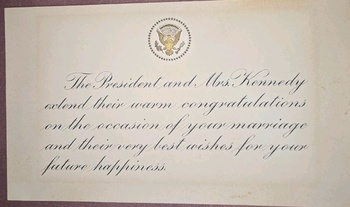 The President and Mrs. Kennedy
extend their warm congratulations
on the occasion of your marriage
and their very best wishes for your
future happiness.